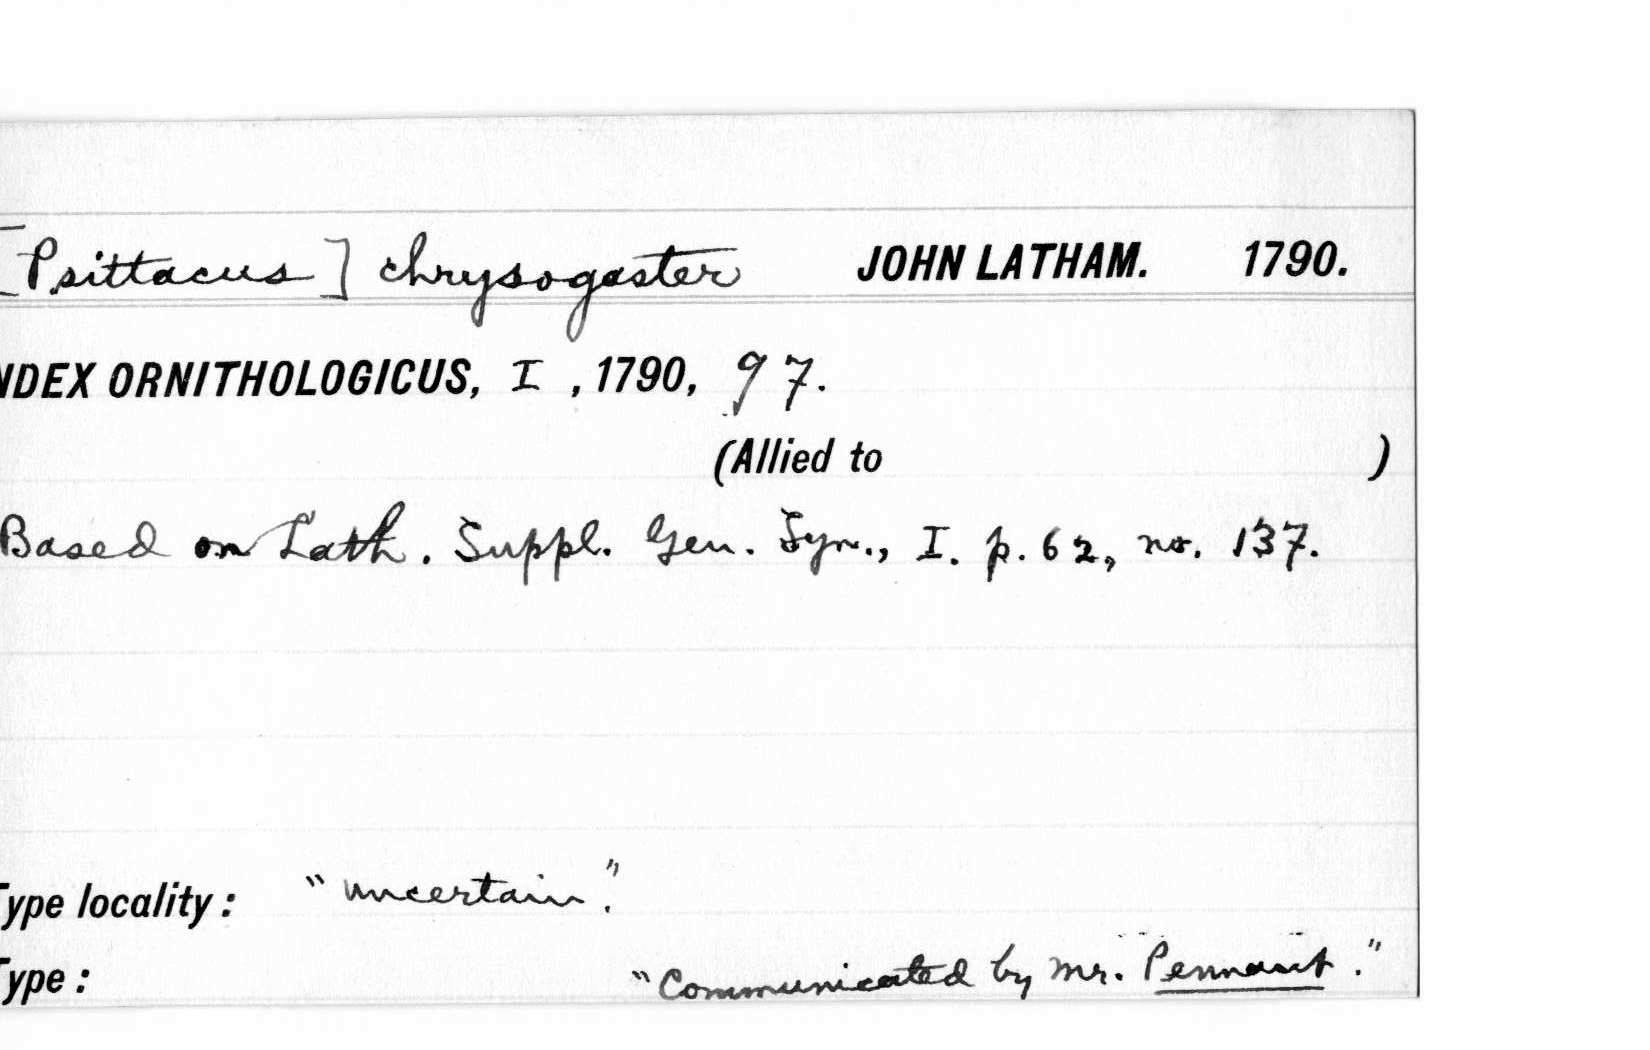 [Psittacus] chrysogaster JOHN LATHAM. 1790.
NDEX ORNITHOLOGICUS, I, 1790, 97.
(Allied to )
Based on Lath. Suppl. Gen. Syn., I. p. 62, no. 137.
Type locality: "uncertain".
Type: "Communicated by Mr. Pennant."